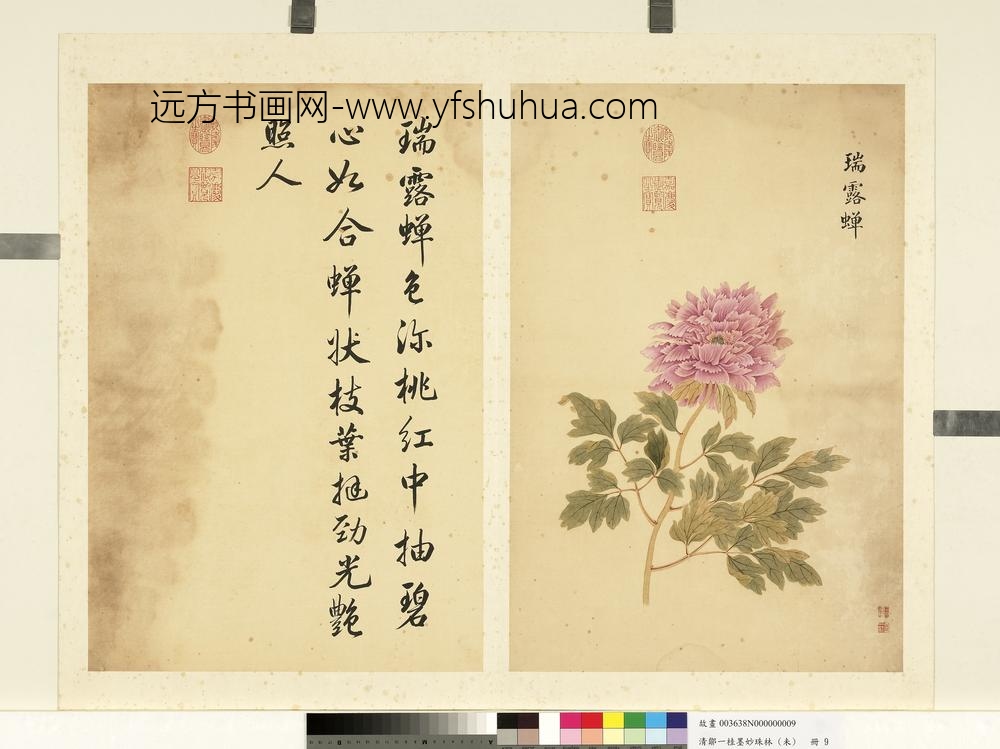 远方书画网-www.yfshuhua.com
瑞露蝉
瑞露蝉色深桃红中抽碧
心如合蝉状枝葉挺劲光艶
照人
故畫 003638N000000009
清鄒一桂墨妙珠林（未） 冊 9